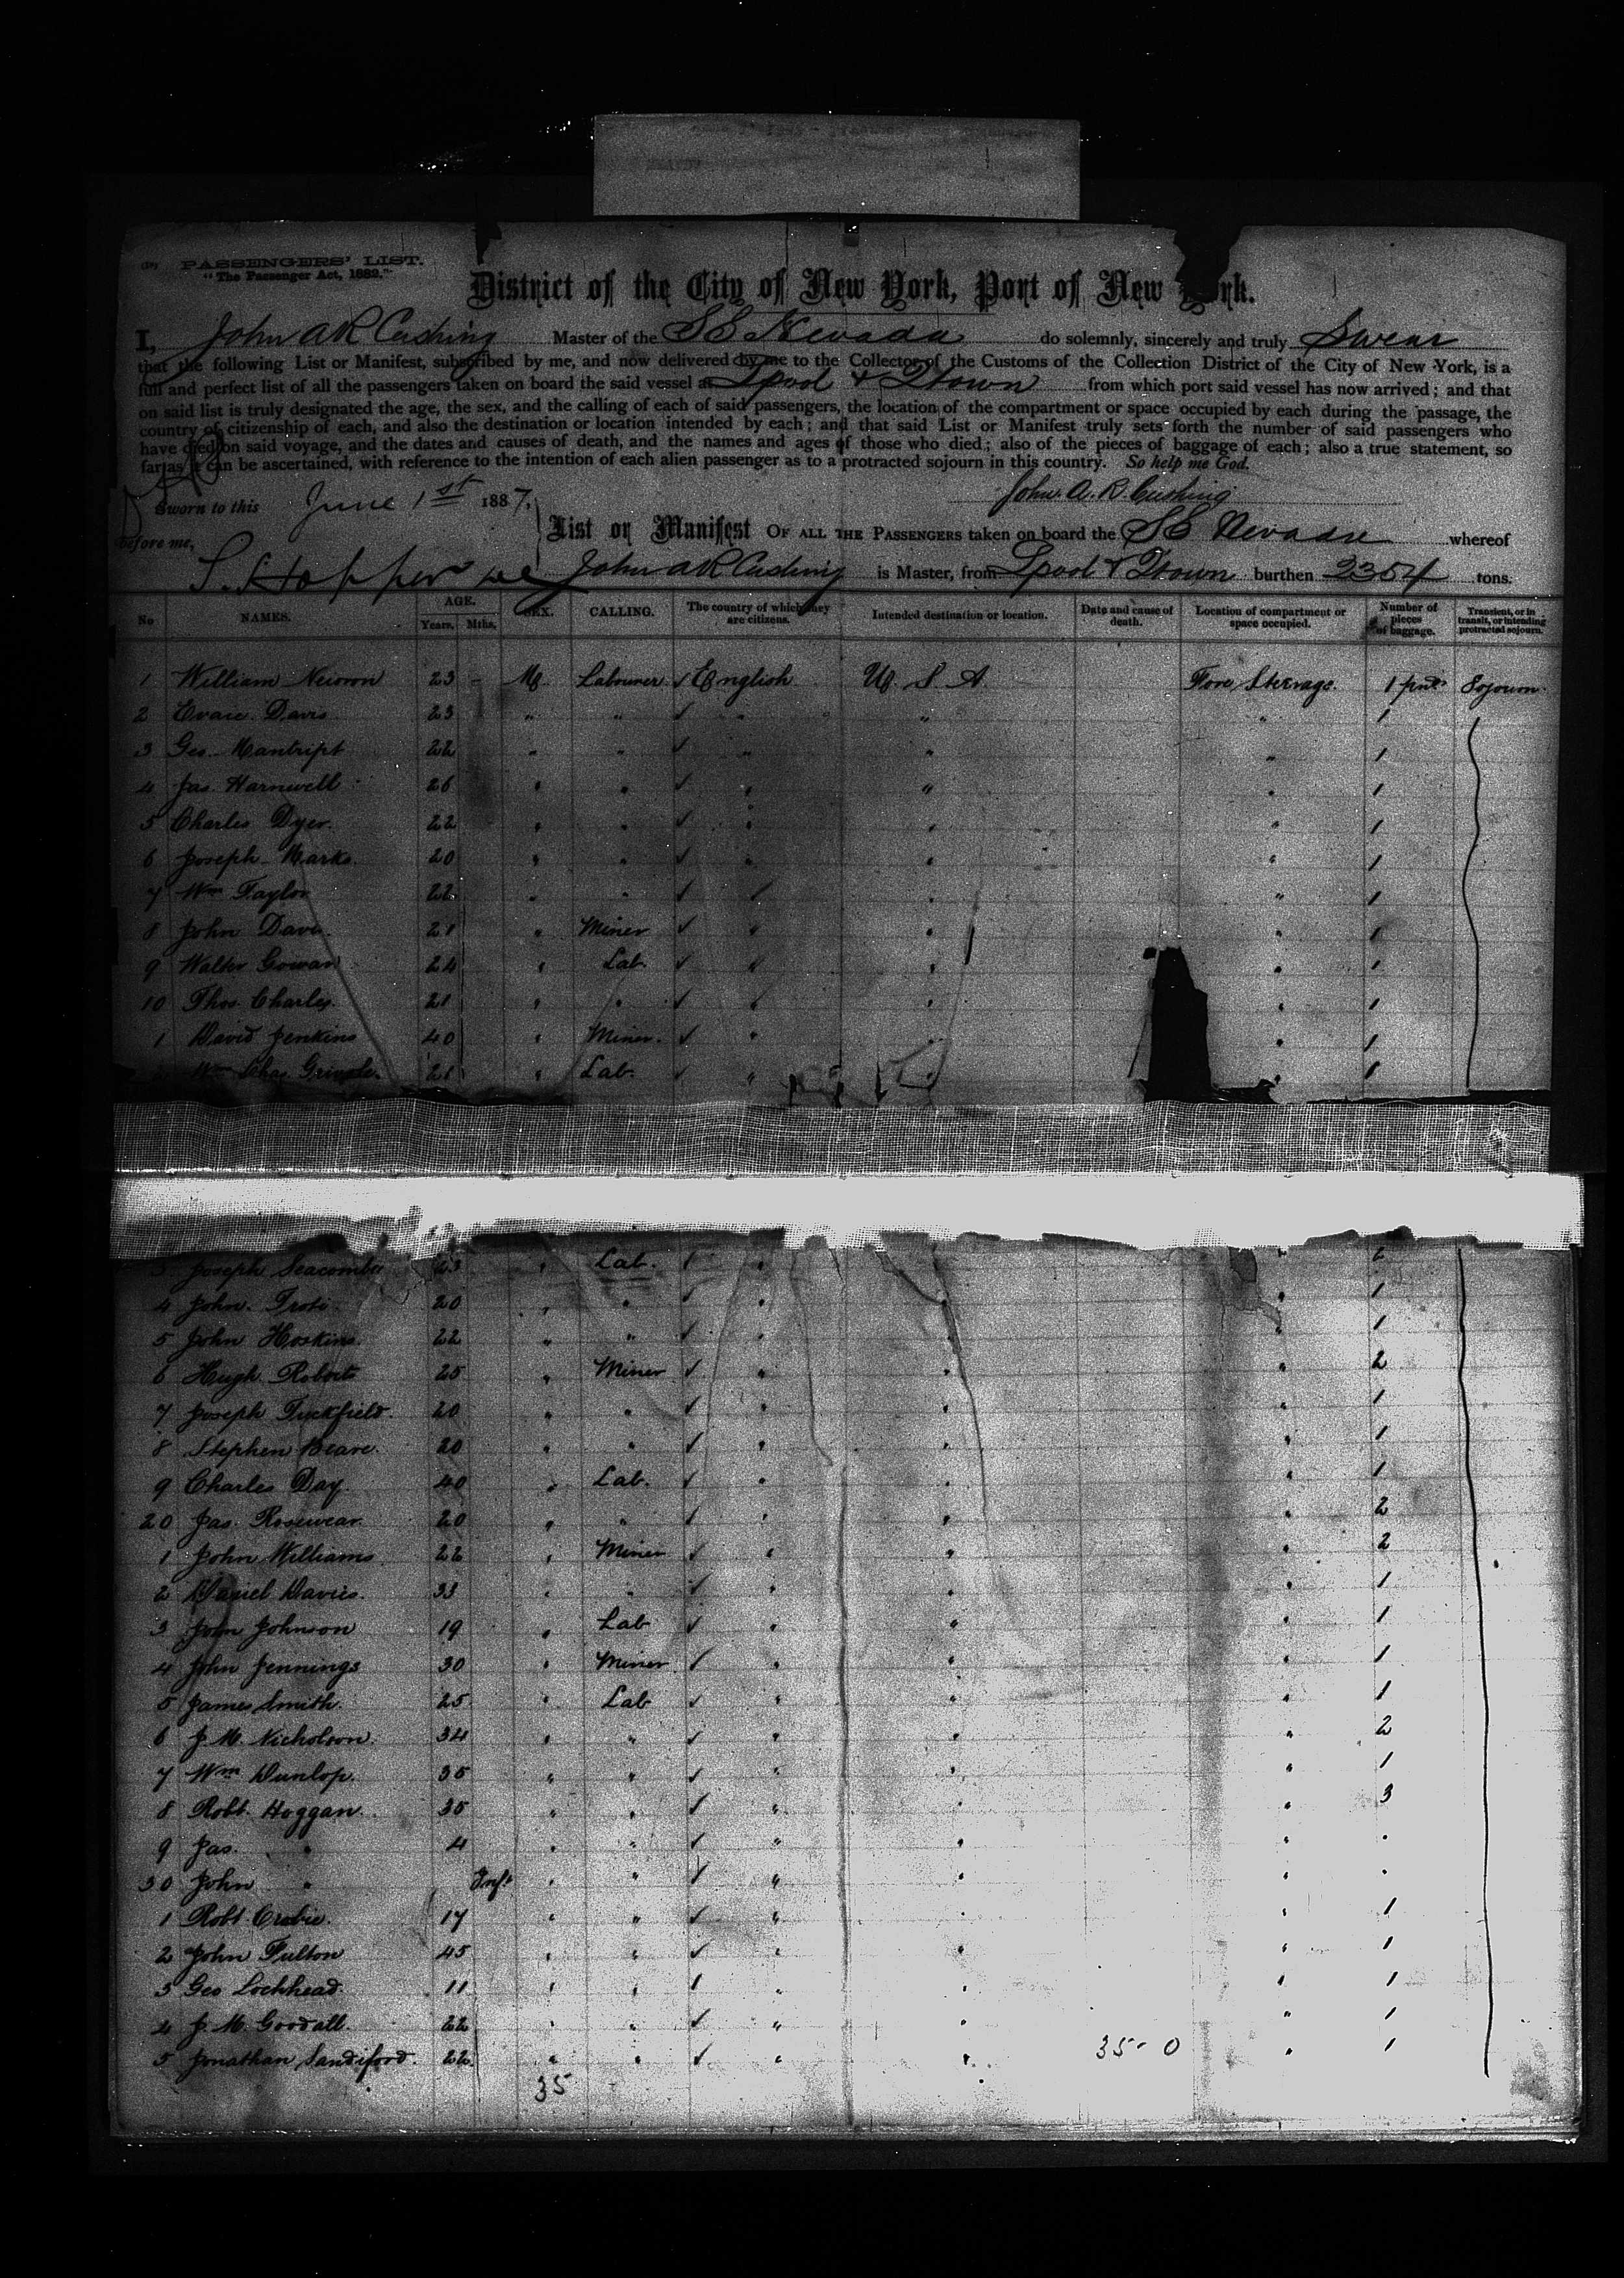 PASSENGERS' LIST.
"The Passenger Act, 1882."
District of the City of New York, Port of New York.
I, John A R Cushing Master of the SS Nevada do solemnly, sincerely and truly Swear
that the following List or Manifest, subscribed by me, and now delivered by me to the Collector of the Customs of the Collection District of the City of New York, is a
full and perfect list of all the passengers taken on board the said vessel at Lpool & Qtown from which port said vessel has now arrived; and that
on said list is truly designated the age, the sex, and the calling of each of said passengers, the location of the compartment or space occupied by each during the passage, the
country of citizenship of each, and also the destination or location intended by each; and that said List or Manifest truly sets forth the number of said passengers who
have died on said voyage, and the dates and causes of death, and the names and ages of those who died; also of the pieces of baggage of each; also a true statement, so
far as it can be ascertained, with reference to the intention of each alien passenger as to a protracted sojourn in this country. So help me God.
John. A. R. Cushing
Sworn to this June 1st 1887,
before me,
List or Manifest OF ALL THE PASSENGERS taken on board the SS Nevada whereof
S. Hopper
John A R Cushing is Master, from Lpool & Qtown burthen 2354 tons.
No NAMES. AGE. Years. Mths. SEX. CALLING. The country of which they are citizens. Intended destination or location. Date and cause of death. Location of compartment or space occupied. Number of pieces of baggage. Transient, or in transit, or intending protracted sojourn.
1 William 23 - M. Labourer ✓ English U. S. A. Fore Steerage. 1 Sojourn.
2 Davis 23 " " ✓ " " " 1
3 Geo. 22 " " ✓ " " " 1
4 Jas. Harnwell 26 " " ✓ " " " 1
5 Charles Dyer. 22 " " ✓ " " " 1
6 Joseph Marks. 20 " " ✓ " " " 1
7 Wm Taylor 22 " " ✓ " " " 1
8 John Davis. 21 " Miner ✓ " " " 1
9 Walter Gowan 24 " Lab. ✓ " " " 1
10 Thos. Charles. 21 " " ✓ " " " 1
1 David Jenkins 40 " Miner. ✓ " " " 1
Wm Chas. 21 " Lab. ✓ " " " 1
3 Joseph Seacombe 23 " Lab. ✓ " " 2
4 John. 20 " " ✓ " " " 1
5 John Hoskins. 22 " " ✓ " " " 1
6 Hugh Roberts 25 " Miner ✓ " " " 2
7 Joseph Tuckfield. 20 " " ✓ " " " 1
8 Stephen Beare. 20 " " ✓ " " " 1
9 Charles Day. 40 " Lab. ✓ " " " 1
20 Jas. Rosewear. 20 " " ✓ " " " 2
1 John Williams. 22 " Miner ✓ " " " 2
2 Daniel Davies. 33 " " ✓ " " " 1
3 John Johnson 19 " Lab ✓ " " " 1
4 John Jennings 30 " Miner ✓ " " " 1
5 James Smith. 25 " Lab ✓ " " " 1
6 J. M. Nicholson. 34 " " ✓ " " " 2
7 Wm Dunlop. 35 " " ✓ " " " 1
8 Robt. Hoggan. 35 " " ✓ " " " 3
9 Jas. " 4 " " ✓ " " " "
30 John " Inft " " ✓ " " " "
1 Robt Crabie. 17 " " ✓ " " " 1
2 John Fulton 45 " " ✓ " " " 1
3 Geo Lochhead. 11 " " ✓ " " " 1
4 J. M. Goodall. 22 " " ✓ " " " 1
5 Jonathan Sandiford. 22 " " ✓ " " 35-0 " 1
35